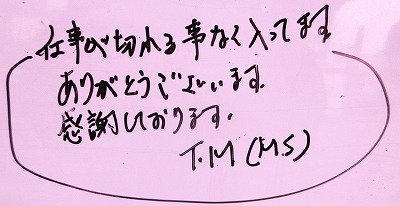 仕事が切れる事なく入ってます
ありがとうございます.
感謝しております.
T.M (M.S)